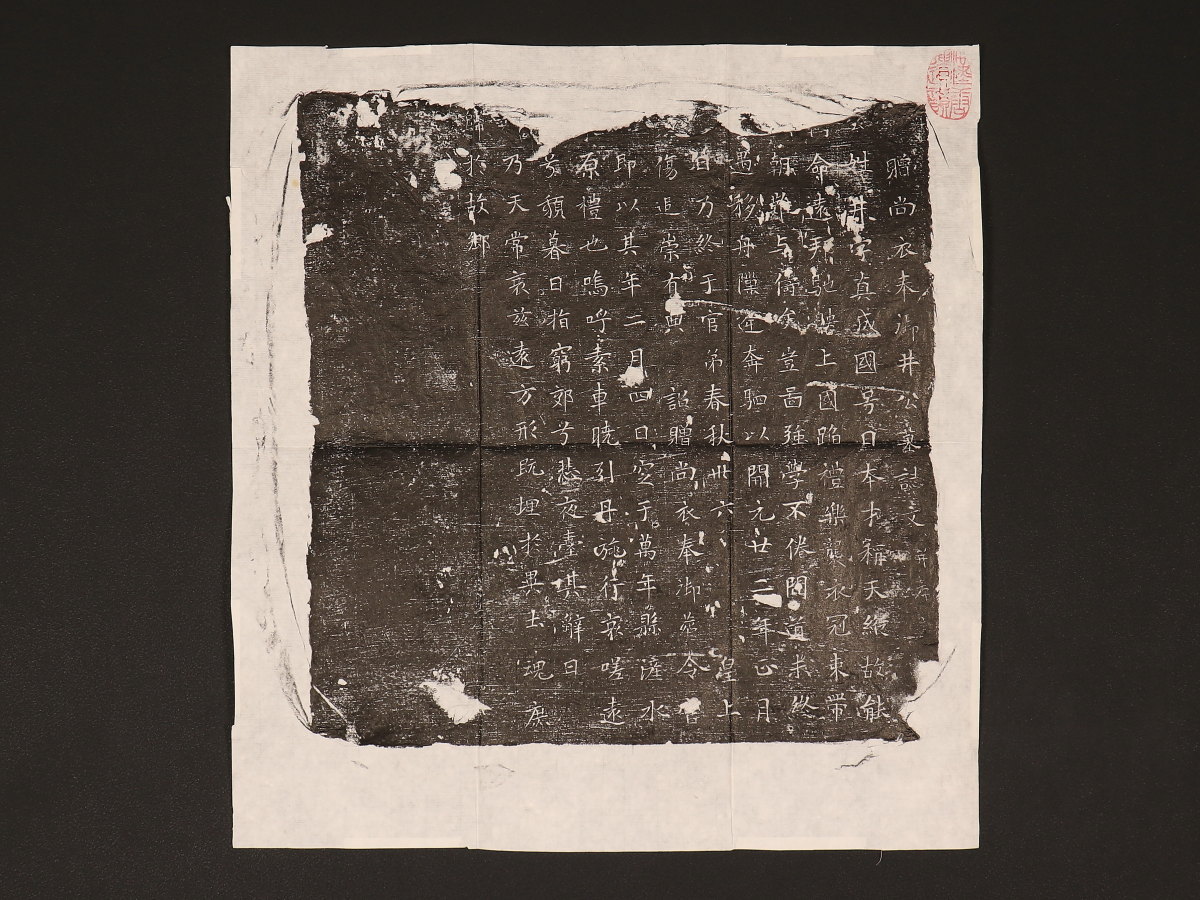 贈尚衣奉御井公墓誌文并序
姓井字真成國号日本才稱天縱故能
命遠邦馳騁上國蹈禮樂襲衣冠束帶
朝難与儔矣豈圖強學不倦問道未終
遇移舟隙逢奔駟以開元廿二年正月
日乃終于官弟春秋卅六 皇上
傷追崇有典 詔贈尚衣奉御葬令官
即以其年二月四日窆于萬年縣滻水
原禮也嗚呼素車曉引丹旐行哀嗟遠
兮頹暮日指窮郊兮悲夜臺其辭曰
乃天常哀茲遠方形既埋於異土魂庶
歸於故鄉